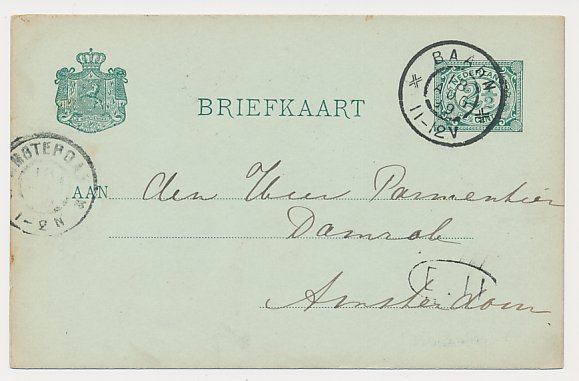 BRIEFKAART
BAARN
11-12V
NEDERLAND
2½
AMSTERDAM
1-2N
AAN den Heer Parmentier
Damrak
E 11
Amsterdam